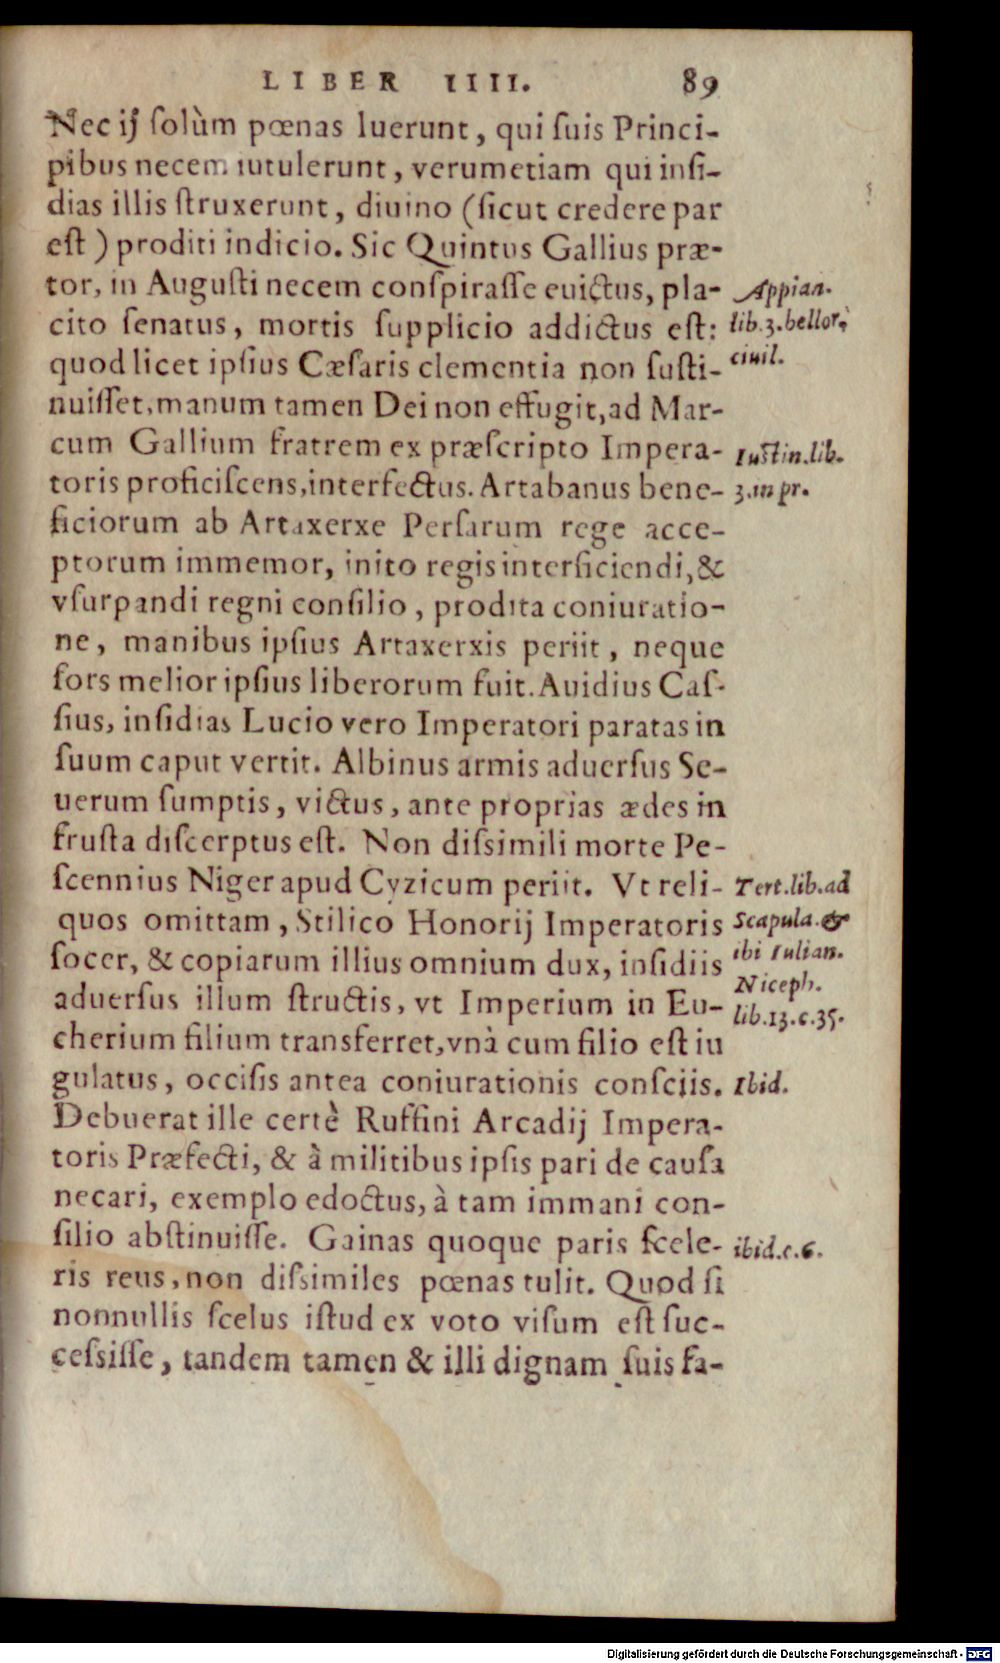 LIBER IIII. 89
Nec ij ſolùm pœnas luerunt, qui ſuis Princi-
pibus necem iutulerunt, verumetiam qui inſi-
dias illis ſtruxerunt, diuino (ſicut credere par
eſt) proditi indicio. Sic Quintus Gallius præ-
tor, in Auguſti necem conſpiraſſe euictus, pla-
cito ſenatus, mortis ſupplicio addictus eſt:
quod licet ipſius Cæſaris clementia non ſuſti-
nuiſſet, manum tamen Dei non effugit, ad Mar-
cum Gallium fratrem ex præſcripto Impera-
toris proficiſcens, interfectus. Artabanus bene-
ficiorum ab Artaxerxe Perſarum rege acce-
ptorum immemor, inito regis interficiendi, &
vſurpandi regni conſilio, prodita coniuratio-
ne, manibus ipſius Artaxerxis periit, neque
ſors melior ipſius liberorum fuit. Auidius Caſ-
ſius, inſidias Lucio vero Imperatori paratas in
ſuum caput vertit. Albinus armis aduerſus Se-
uerum ſumptis, victus, ante proprias ædes in
fruſta diſcerptus eſt. Non diſsimili morte Pe-
ſcennius Niger apud Cyzicum periit. Vt reli-
quos omittam, Stilico Honorij Imperatoris
ſocer, & copiarum illius omnium dux, inſidiis
aduerſus illum ſtructis, vt Imperium in Eu-
cherium filium transferret, vnà cum filio eſt iu
gulatus, occiſis antea coniurationis conſciis.
Debuerat ille certè Ruffini Arcadij Impera-
toris Præfecti, & à militibus ipſis pari de cauſa
necari, exemplo edoctus, à tam immani con-
ſilio abſtinuiſſe. Gainas quoque paris ſcele-
ris reus, non diſsimiles pœnas tulit. Quod ſi
nonnullis ſcelus iſtud ex voto viſum eſt ſuc-
ceſsiſſe, tandem tamen & illi dignam ſuis fa-
Appian.
lib.3.bellor.
ciuil.
Iuſtin.lib.
3.in pr.
Tert.lib.ad
Scapula.&
ibi Iulian.
Niceph.
lib.13.c.35.
Ibid.
ibid.c.6.
Digitalisierung gefördert durch die Deutsche Forschungsgemeinschaft - DFG